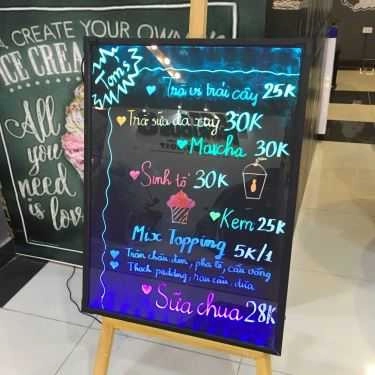 CREATE YOUR OWN
ICE CREAM
All
you
need
is love
Toms
Trà vị trái cây 25K
Trà sữa đá xay 30K
Matcha 30K
Sinh tố 30K
Kem 25K
Mix Topping 5K/1
Trân châu đen, pha lê, cầu vồng
Thạch pudding, rau câu, dừa
Sữa chua 28K